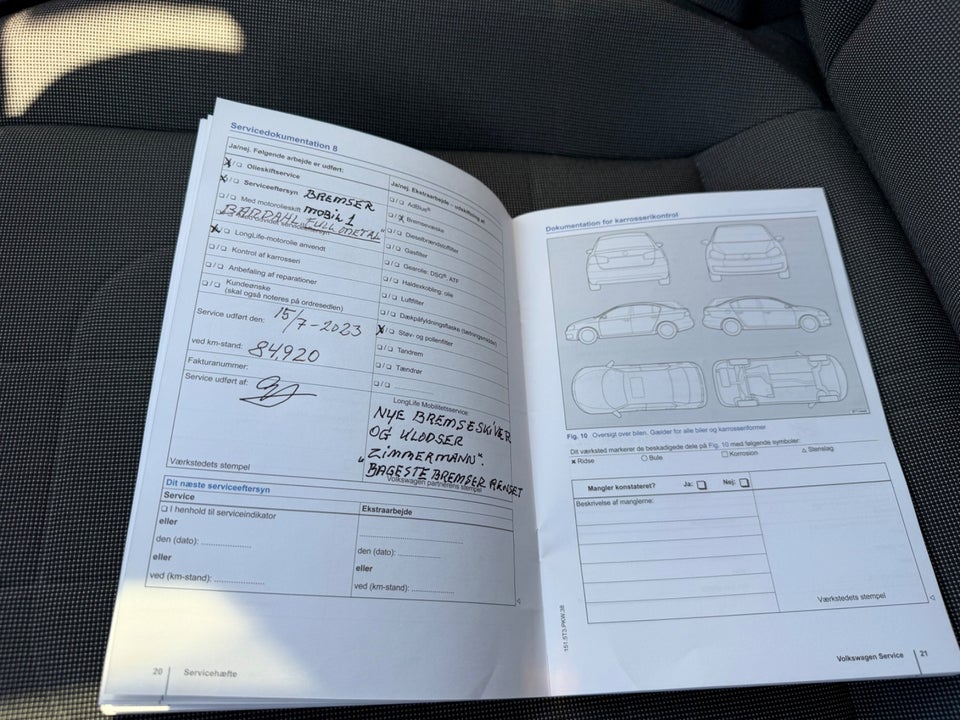 Servicedokumentation 8
Ja/nej. Følgende arbejde er udført:
X/❑ Olieskiftservice
X/❑ Serviceeftersyn BREMSER
❑/❑ Med motorolieskift MOBIL 1
BARDAHL FULL METAL"
X/❑ LongLife-motorolie anvendt
❑/❑ Kontrol af karrosseri
❑/❑ Anbefaling af reparationer
❑/❑ Kundeønske
(skal også noteres på ordresedlen)
Service udført den: 15/7-2023
ved km-stand: 84,920
Fakturanummer:
Service udført af:
Værkstedets stempel
Ja/nej. Ekstraarbejde – udskiftning af:
❑/❑ AdBlue®
❑/X Bremsevæske
❑/❑ Dieselbrændstoffilter
❑/❑ Gasfilter
❑/❑ Gearolie: DSG®, ATF
❑/❑ Haldexkobling: olie
❑/❑ Luftfilter
❑/❑ Dækpåfyldningsflaske (tætningsmiddel)
X/❑ Støv- og pollenfilter
❑/❑ Tandrem
❑/❑ Tændrør
❑/❑
LongLife Mobilitetsservice
NYE BREMSESKIVER
OG KLODSER
"ZIMMERMANN".
BAGESTE BREMSER RENSET
Volkswagen partnerens stempel
Dit næste serviceeftersyn
Service
❑ I henhold til serviceindikator
eller
den (dato): ....................
eller
ved (km-stand): ....................
Ekstraarbejde
den (dato): ....................
eller
ved (km-stand): ....................
20 Servicehæfte
Dokumentation for karrosserikontrol
Fig. 10 Oversigt over bilen. Gælder for alle biler og karrosseriformer.
Dit værksted markerer de beskadigede dele på Fig. 10 med følgende symboler:
× Ridse ○ Bule □ Korrosion △ Stenslag
Mangler konstateret? Ja: ❑ Nej: ❑
Beskrivelse af manglerne:
Værkstedets stempel
151.5T3.PKW.38
Volkswagen Service 21